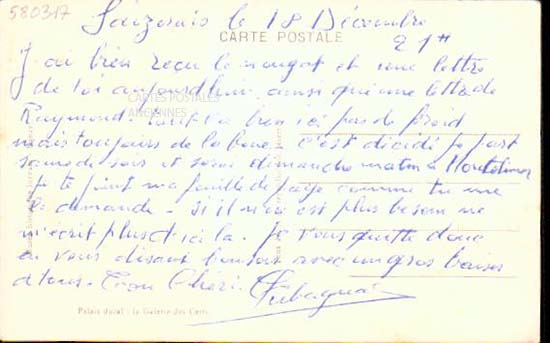 580317
le 18 Décembre
CARTE POSTALE
J'ai bien reçu le nougat et une lettre
de toi aujourd'hui ainsi qu'une lettre de
CARTES POSTALES
ANCIENNES
Raymond. Tout va bien ici pas de froid
mais toujours de la boue. c'est décidé je part
samedi soir et serai dimanche matin a Montelimar
je te joint ma feuille de paye comme tu me
le demande - s'il n'en est plus besoin ne
m'écrit plus d'ici la. Je vous quitte donc
en vous disant bonsoir avec un gros baiser
a tous. Ton Chéri.
Palais ducal : la Galerie des Cerfs